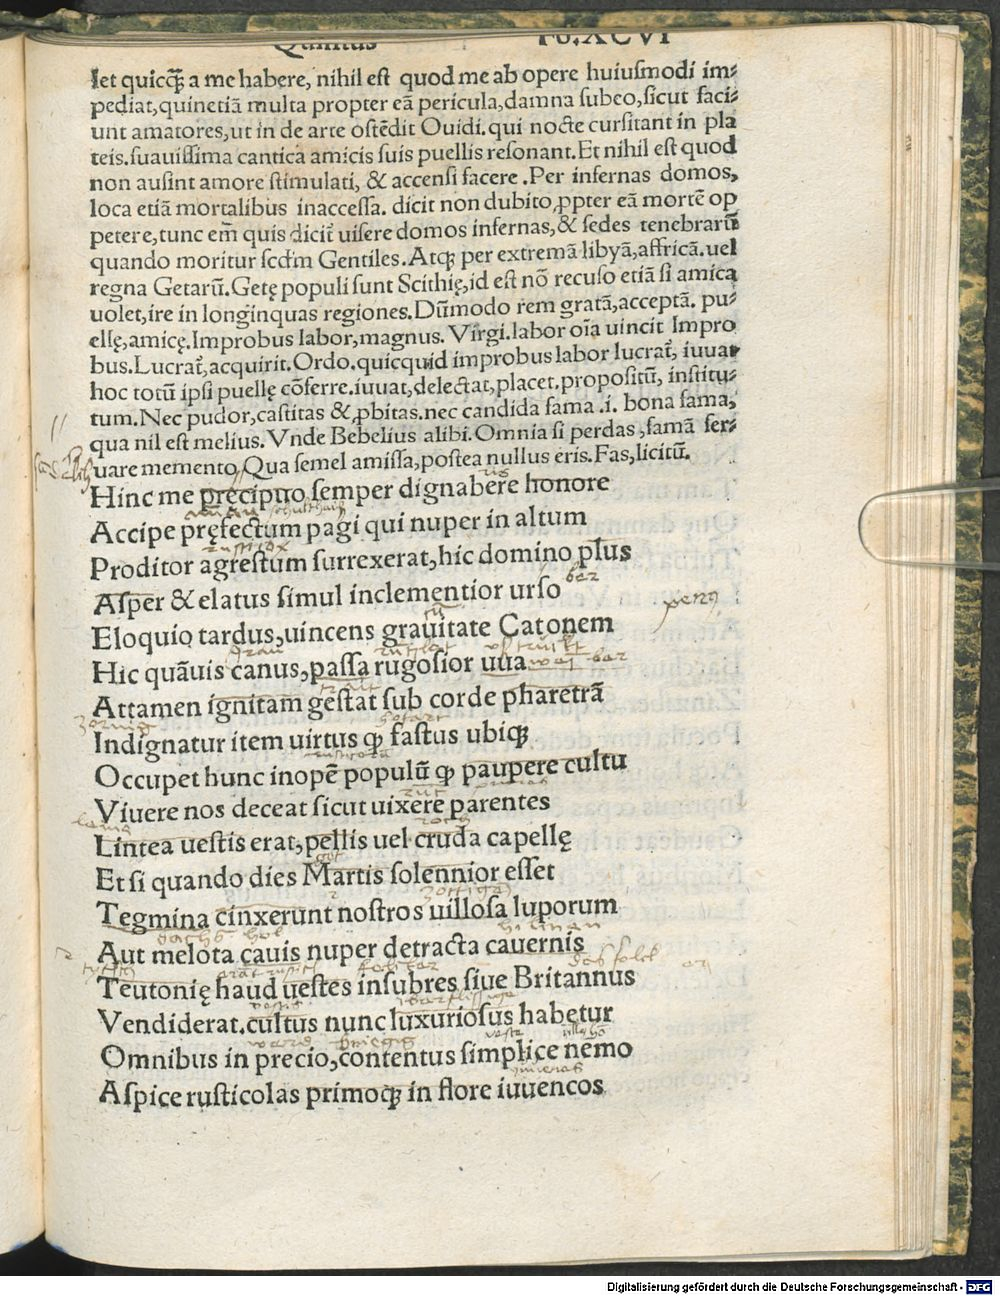 Quintus Fo.XCVI
let quicq̃ a me habere, nihil est quod me ab opere huiusmodi im⸗
pediat,quinetiã multa propter eã pericula,damna subeo,sicut faci⸗
unt amatores,ut in de arte ostẽdit Ouidi.qui nocte cursitant in pla
teis.suauissima cantica amicis suis puellis resonant.Et nihil est quod
non ausint amore stimulati, & accensi facere .Per infernas domos,
loca etiã mortalibus inaccessa. dicit non dubito,ꝓpter eã mortẽ op
petere,tunc em̃ quis dicit̃ uisere domos infernas,& sedes tenebrarũ
quando moritur scd̃m Gentiles.Atqꝫ per extremã libyã,affricã.uel
regna Getarũ.Getę populi sunt Scithię,id est nõ recuso etiã si amica
uolet,ire in longinquas regiones.Dũmodo rem gratã,acceptã. pu⸗
ellę,amicę.Improbus labor,magnus. Virgi.labor oĩa uincit Impro
bus.Lucrat̃,acquirit.Ordo.quicquid improbus labor lucrat̃, iuuat
hoc totũ ipsi puellę cõferre.iuuat,delectat,placet.propositũ, institu⸗
tum.Nec pudor,castitas &,ꝓbitas.nec candida fama .i. bona fama,
qua nil est melius.Vnde Bebelius alibi.Omnia si perdas ,famã ser⸗
uare memento,Qua semel amissa,postea nullus eris.Fas,licitũ.
Hinc me pręcipuo semper dignabere honore
Accipe pręfectum pagi qui nuper in altum
Proditor agrestum surrexerat,hic domino plus
Asper & elatus simul inclementior urso
Eloquio tardus,uincens grauitate Catonem
Hic quãuis canus,passa rugosior uua
Attamen ignitam gestat sub corde pharetrã
Indignatur item uirtus qꝫ fastus ubiqꝫ
Occupet hunc inopẽ populũ qꝫ paupere cultu
Viuere nos deceat sicut uixere parentes
Lintea uestis erat,pellis uel cruda capellę
Et si quando dies Martis solennior esset
Tegmina cinxerunt nostros uillosa luporum
Aut melota cauis nuper detracta cauernis
Teutonię haud uestes insubres siue Britannus
Vendiderat.cultus nunc luxuriosus habetur
Omnibus in precio,contentus simplice nemo
Aspice rusticolas primoqꝫ in flore iuuencos
Digitalisierung gefördert durch die Deutsche Forschungsgemeinschaft - DFG